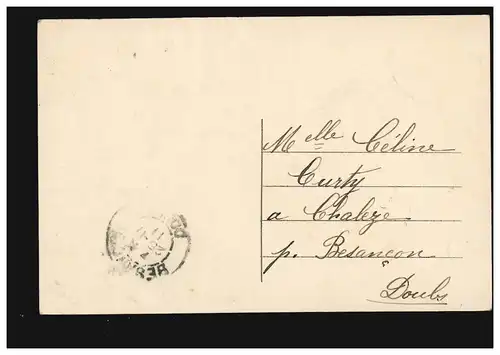 Melle Céline
Curty
a Chaleze
p. Besançon
Doubs